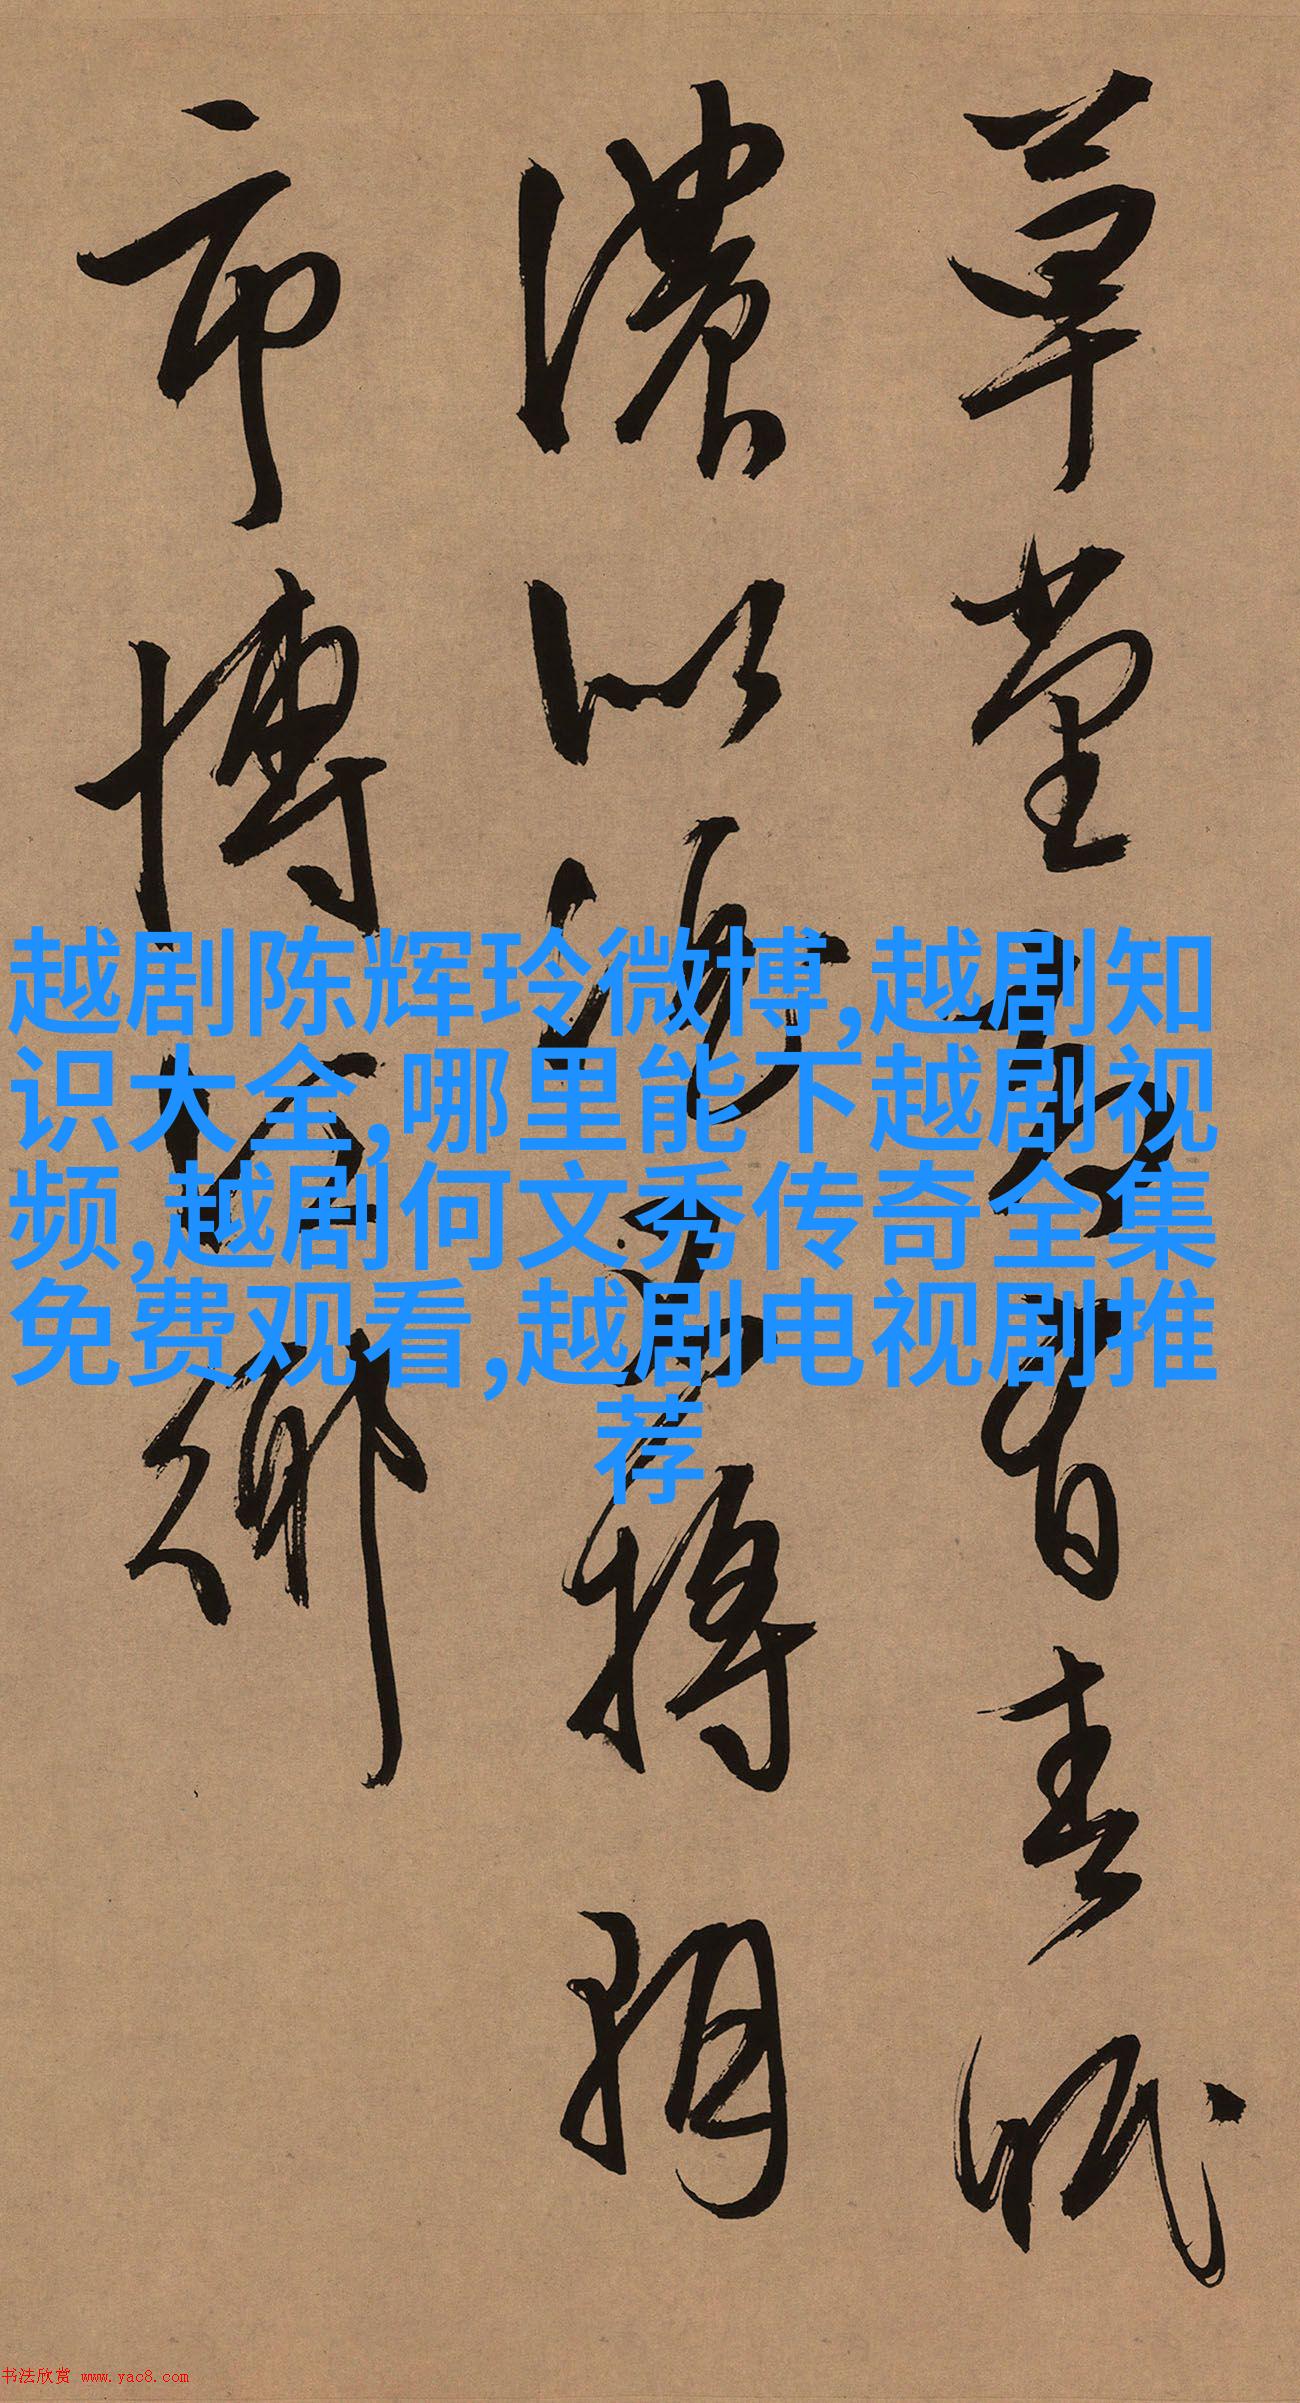 草堂有春眠
濃以
市博卿
越剧陈辉玲微博,越剧知
识大全,哪里能下越剧视
频,越剧何文秀传奇全集
免费观看,越剧电视剧推
荐
书法欣赏 www.yac8.com